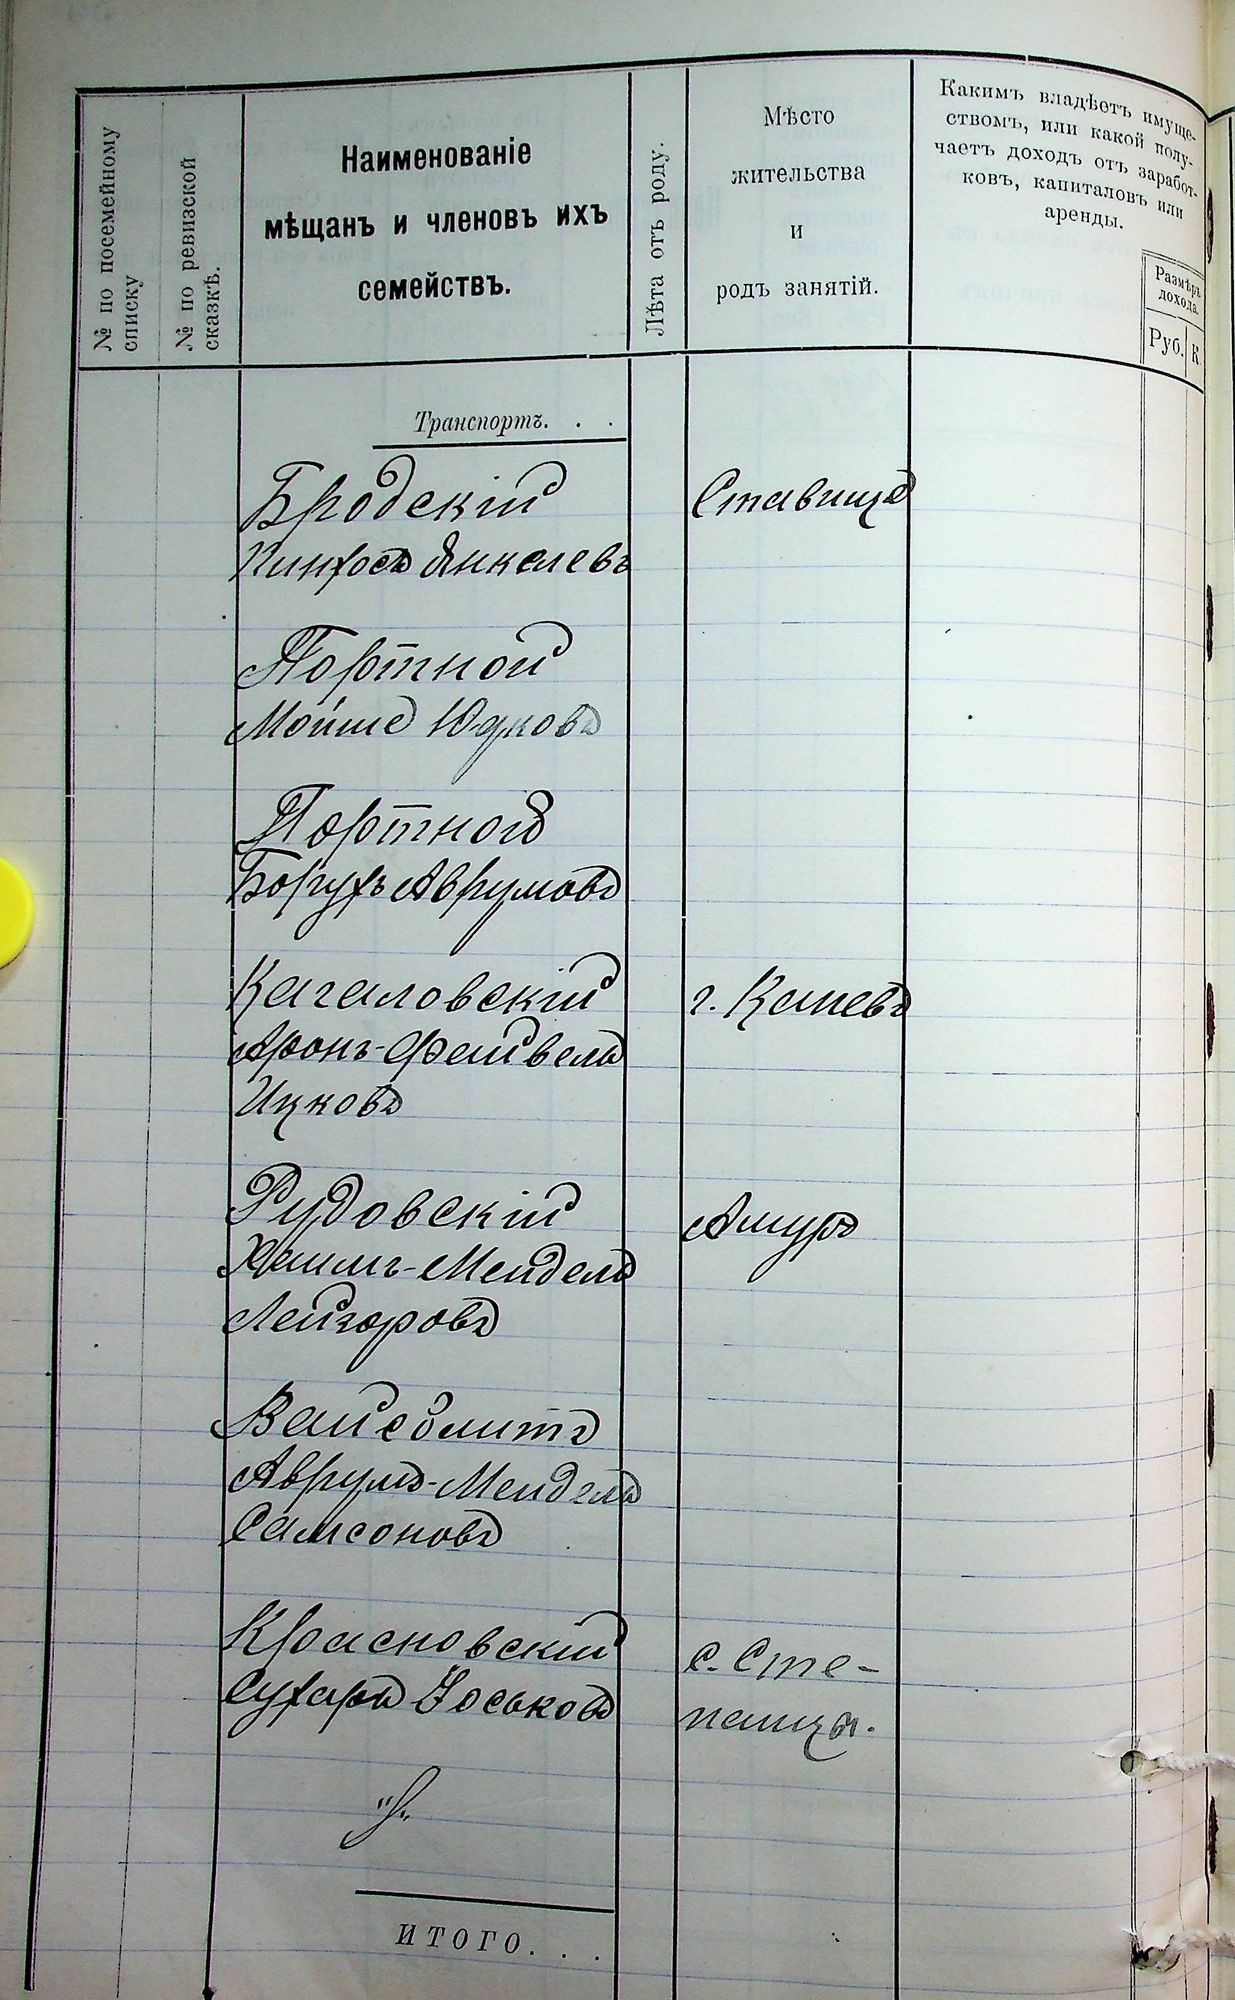 № по посемейному
списку
№ по ревизской
сказкѣ.
Наименованіе
мѣщанъ и членовъ ихъ
семействъ.
Лѣта отъ роду.
Мѣсто
жительства
и
родъ занятій.
Какимъ владѣетъ имуще-
ствомъ, или какой полу-
чаетъ доходъ отъ заработ-
ковъ, капиталовъ или
аренды.
Размѣръ
дохода.
Руб.
К
Транспортъ. . .
Бродскій
Ставище
Пинхосъ Янкелевъ
Портной
Мойше Юдковъ
Портной
Борухъ Аврумовъ
Кагаловскій
г. Каневъ
Аронъ-Файвель
Ицковъ
Рудовскій
Амуръ
Хаимъ-Мендель
Лейзоровъ
Вайсблитъ
Аврумъ-Мендель
Самсоновъ
Красновскій
с. Сте-
Сухаръ Іоськовъ
панцы.
ИТОГО. . .